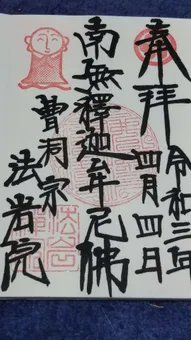 奉拝
令和三年
四月四日
南無釋迦牟尼佛
曹洞宗
法岩院